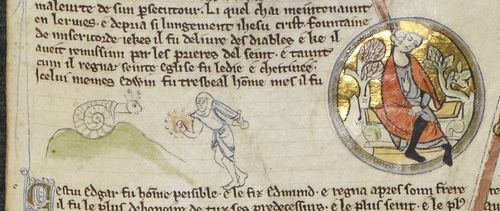 maleurte de sun psecutour. Li quel chaï meintenaunt
en lermes. e depria si lungement ihesu crist fountaine
de misericorde. ke il fu deliure des diables e ke il
aueit remissiun par les prieres del seint. e taunt
cum il regna seinte eglise fu ledie e chetiuee.
Icelui memes edwin fu tresbeal home mes il fu
Cestui edgar fu home peisible. e le fiz edmund. e regna apres soun frere
il fu le plus de honour de tuz ses predecessurs. e le plus seint. e le pl9